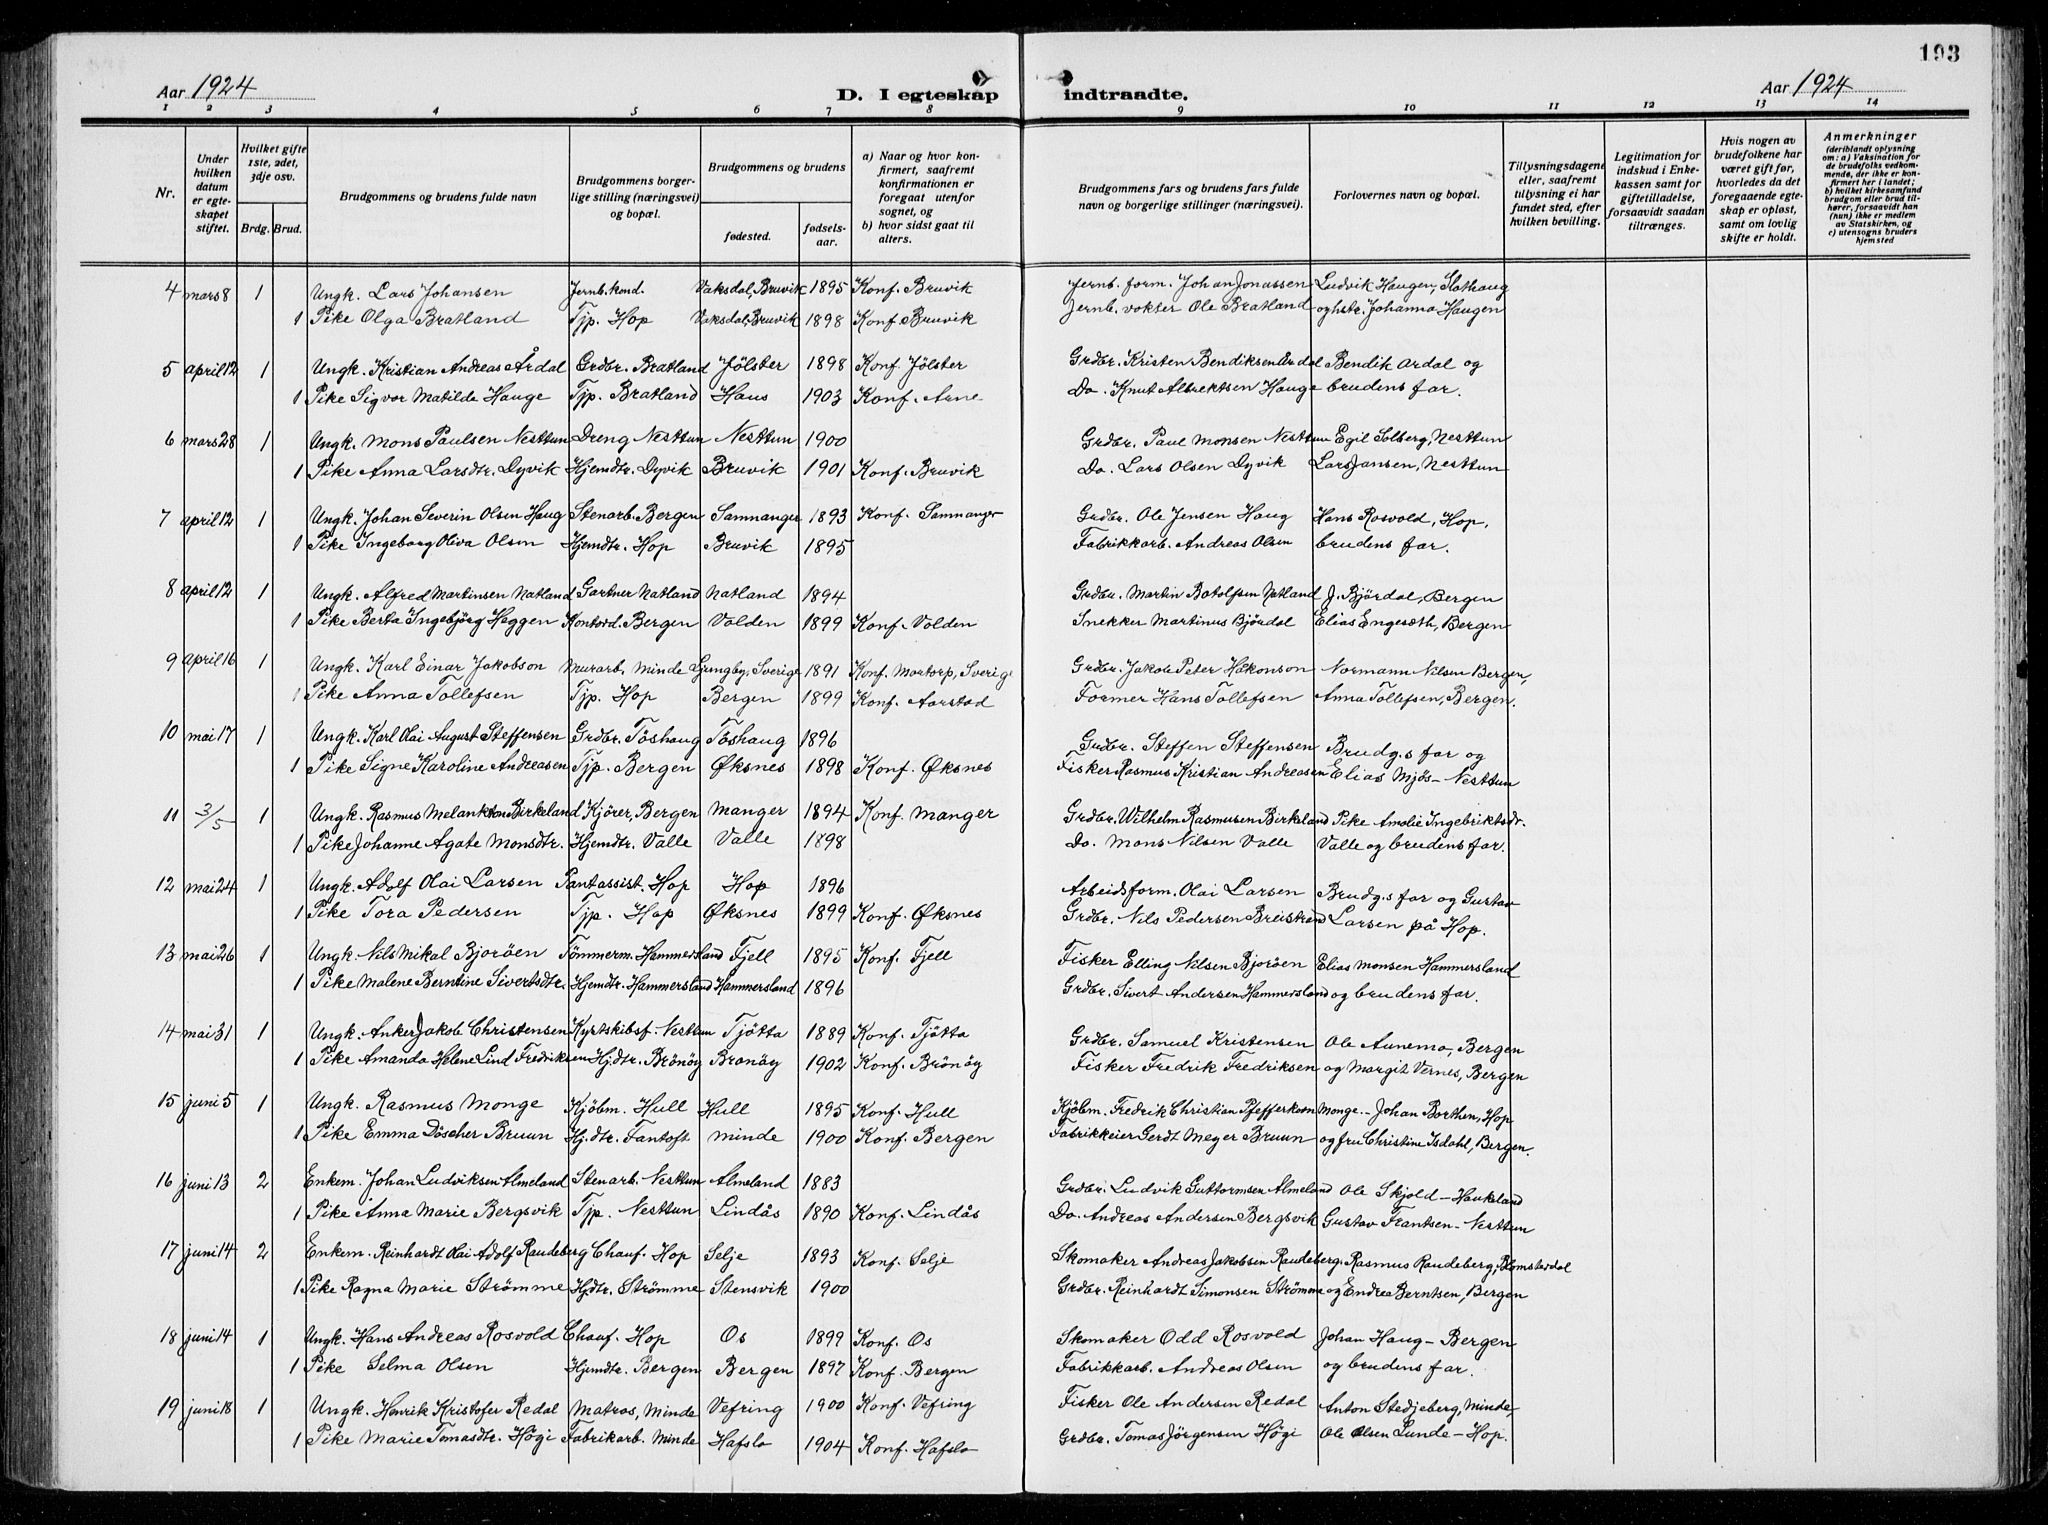 193
Aar 1924
D. I egteskap indtraadte.
Aar 1924
1 2 3 4 5 6 7 8 9 10 11 12 13 14
Nr.
Under hvilken datum er egteskapet stiftet.
Hvilket gifte 1ste, 2det, 3dje osv.
Brdg. Brud.
Brudgommens og brudens fulde navn
Brudgommens borgerlige stilling (næringsvei) og bopæl.
Brudgommens og brudens
fødested.
fødselsaar.
a) Naar og hvor konfirmert, saafremt konfirmationen er foregaat utenfor sognet, og
b) hvor sidst gaat til alters.
Brudgommens fars og brudens fars fulde navn og borgerlige stillinger (næringsvei).
Forlovernes navn og bopæl.
Tillysningsdagene eller, saafremt tillysning ei har fundet sted, efter hvilken bevilling.
Legitimation for indskud i Enkekassen samt for giftetilladelse, forsaavidt saadan tiltrænges.
Hvis nogen av brudefolkene har været gift før, hvorledes da det foregaaende egteskap er opløst, samt om lovlig skifte er holdt.
Anmerkninger
(deriblandt oplysning om: a) Vaksination for de brudefolks vedkommende, der ikke er konfirmert her i landet; b) hvilket kirkesamfund brudgom eller brud tilhører, forsaavidt han (hun) ikke er medlem av Statskirken, og c) utensogns bruders hjemsted
4 mars 8 1 Ungk. Lars Johansen Jernb.kond. Vaksdal, Bruvik 1895 Konf. Bruvik Jernb. form. Johan Jonassen Ludvik Haugen, Slathaug
1 Pike Olga Bratland Tjp. Hop Vaksdal, Bruvik 1898 Konf. Bruvik Jernb. vokter Ole Bratland og hstr. Johanna Haugen
5 april 12 1 Ungk. Kristian Andreas Årdal Grdbr. Bratland Jølster 1898 Konf. Jølster Grdbr. Kristen Bendiksen Årdal Bendik Ardal og
1 Pike Sigvor Matilde Hauge Tjp. Bratland Haus 1903 Konf. Arne Do. Knut Albrektsen Hauge brudens far.
6 mars 28 1 Ungk. Mons Paulsen Nesttun Dreng Nesttun Nesttun 1900 Grdbr. Paul Monsen Nesttun Egil Solberg, Nesttun
1 Pike Anna Larsdtr. Dyvik Hjemdtr. Dyvik Bruvik 1901 Konf. Bruvik Do. Lars Olsen Dyvik Lars Jansen, Nesttun
7 april 12 1 Ungk. Johan Severin Olsen Haug Stenarb. Bergen Samnanger 1893 Konf. Samnanger Grdbr. Ole Jensen Haug Hans Rosvold, Hop,
1 Pike Ingeborg Oliva Olsen Hjemdtr. Hop Bruvik 1895 Fabrikkarb. Andreas Olsen brudens far.
8 april 12 1 Ungk. Alfred Martinsen Natland Gartner Natland Natland 1894 Grdbr. Martin Botolfsen Natland J. Björdal, Bergen
1 Pike Berta Ingebjörg Heggen Kontord. Bergen Volden 1899 Konf. Volden Snekker Martinus Björdal Elias Engeseth, Bergen
9 april 16 1 Ungk. Karl Einar Jakobson Murarb. Minde Ljungby, Sverige 1891 Konf. Mortorp, Sverige Grdbr. Jakob Peter Håkonson Normann Nilsen Bergen,
1 Pike Anna Tollefsen Tjp. Hop Bergen 1899 Konf. Aarstad Former Hans Tollefsen Anna Tollefsen, Bergen.
10 mai 17 1 Ungk. Karl Olai August Steffensen Grdbr. Töshaug Töshaug 1896 Grdbr. Steffen Steffensen Brudg.s far og
1 Pike Signe Karoline Andreasen Tjp. Bergen Øksnes 1898 Konf. Øksnes Fisker Rasmus Kristian Andreasen Elias Mjös - Nesttun
11 3/5 1 Ungk. Rasmus Melankton Birkeland Kjörer, Bergen Manger 1894 Konf. Manger Grdbr. Wilhelm Rasmusen Birkeland Pike Amalie Ingebriktsdr.
1 Pike Johanne Agate Monsdtr. Hjemdtr. Valle Valle 1898 Do. Mons Nilsen Valle Valle og brudens far.
12 mai 24 1 Ungk. Adolf Olai Larsen Pantassist. Hop Hop 1896 Arbeidsform. Olai Larsen Brudg.s far og Gustav
1 Pike Tora Pedersen Tjp. Hop Øksnes 1899 Konf. Øksnes Grdbr. Nils Pedersen Breistrand Larsen på Hop.
13 mai 26 1 Ungk. Nils Mikal Bjoröen Tömmerm. Hammersland Fjell 1895 Konf. Fjell Fisker Elling Nilsen Bjoröen Elias Monsen Hammersland
1 Pike Malene Berntine Sivertsdtr. Hjemdtr. Hammersland Hammersland 1896 Grdbr. Sivert Andersen Hammersland og brudens far.
14 mai 31 1 Ungk. Anker Jakob Christensen Kyrtskibsf. Nesttun Tjötta 1889 Konf. Tjötta Grdbr. Samuel Kristensen Ole Aunemo, Bergen
1 Pike Amanda Helene Lind Fredriksen Hjdtr. Brönöy Bronöy 1902 Konf. Brönöy Fisker Fredrik Fredriksen og Margit Vernes, Bergen
15 juni 5 1 Ungk. Rasmus Monge Kjöbm. Hull Hull 1895 Konf. Hull Kjöbm. Fredrik Christian Pfefferkorn Monge. - Johan Borthen, Hop
1 Pike Emma Döscher Bruun Hj.dtr. Fantoft Minde 1900 Konf. Bergen Fabrikkeier Gerdt Meyer Bruun og fru Christine Isdahl, Bergen.
16 juni 13 2 Enkem. Johan Ludviksen Almeland Stenarb. Nesttun Almeland 1883 Grdbr. Ludvik Guttormsen Almeland Ole Skjold - Haukeland
1 Pike Anna Marie Bergsvik Tjp. Nesttun Lindås 1890 Konf. Lindås Do. Andreas Andersen Bergsvik Gustav Frantsen - Nesttun
17 juni 14 2 Enkem. Reinhardt Olai Adolf Raudeberg Chauf. Hop Selje 1893 Konf. Selje Skomaker Andreas Jakobsen Raudeberg. Rasmus Raudeberg, Blomsterdal
1 Pike Ragna Marie Strömme Hjdtr. Strömme Stensvik 1900 Grdbr. Reinhardt Simonsen Strömme og Endrea Berntsen, Bergen
18 juni 14 1 Ungk. Hans Andreas Rosvold Chauf. Hop Os 1899 Konf. Os Skomaker Odd Rosvold Johan Haug - Bergen
1 Pike Selma Olsen Hjemdtr. Bergen Bergen 1897 Konf. Bergen Fabrikkarb. Andreas Olsen og brudens far.
19 juni 18 1 Ungk. Henrik Kristofer Redal Matros, Minde Vefring 1900 Konf. Vefring Fisker Ole Andersen Redal Anton Stedjeberg, Minde,
1 Pike Marie Tomasdtr. Högi Fabrikarb. Minde Hafslo 1904 Konf. Hafslo Grdbr. Tomas Jörgensen Högi Ole Olsen Lunde - Hop.